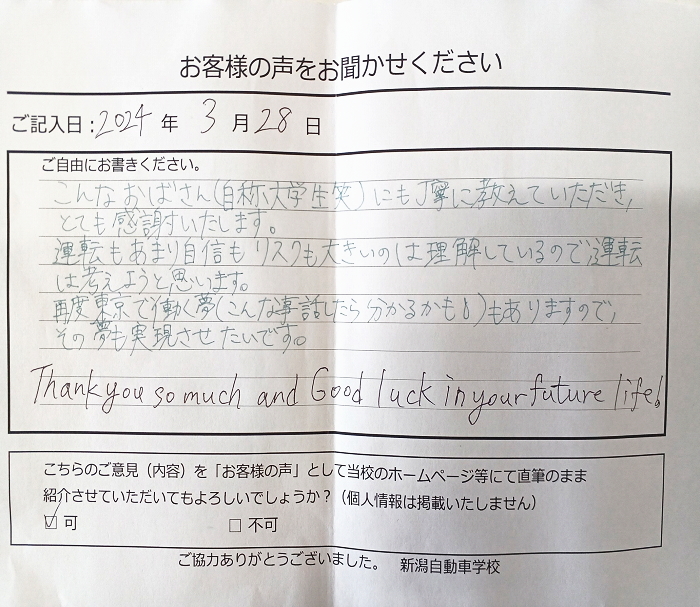 お客様の声をお聞かせください
ご記入日:2024年 3月28日
ご自由にお書きください。
こんなおばさん(自称大学生笑)にも丁寧に教えていただき,
とても感謝いたします。
運転もあまり自信もリスクも大きいのは理解しているので運転
は考えようと思います。
再度東京で働く夢(こんな事話したら分かるかも!)もありますので,
その夢も実現させたいです。
Thank you so much and Good luck in your future life!
こちらのご意見(内容)を「お客様の声」として当校のホームページ等にて直筆のまま
紹介させていただいてもよろしいでしょうか?(個人情報は掲載いたしません)
☑ 可 □ 不可
ご協力ありがとうございました。 新潟自動車学校